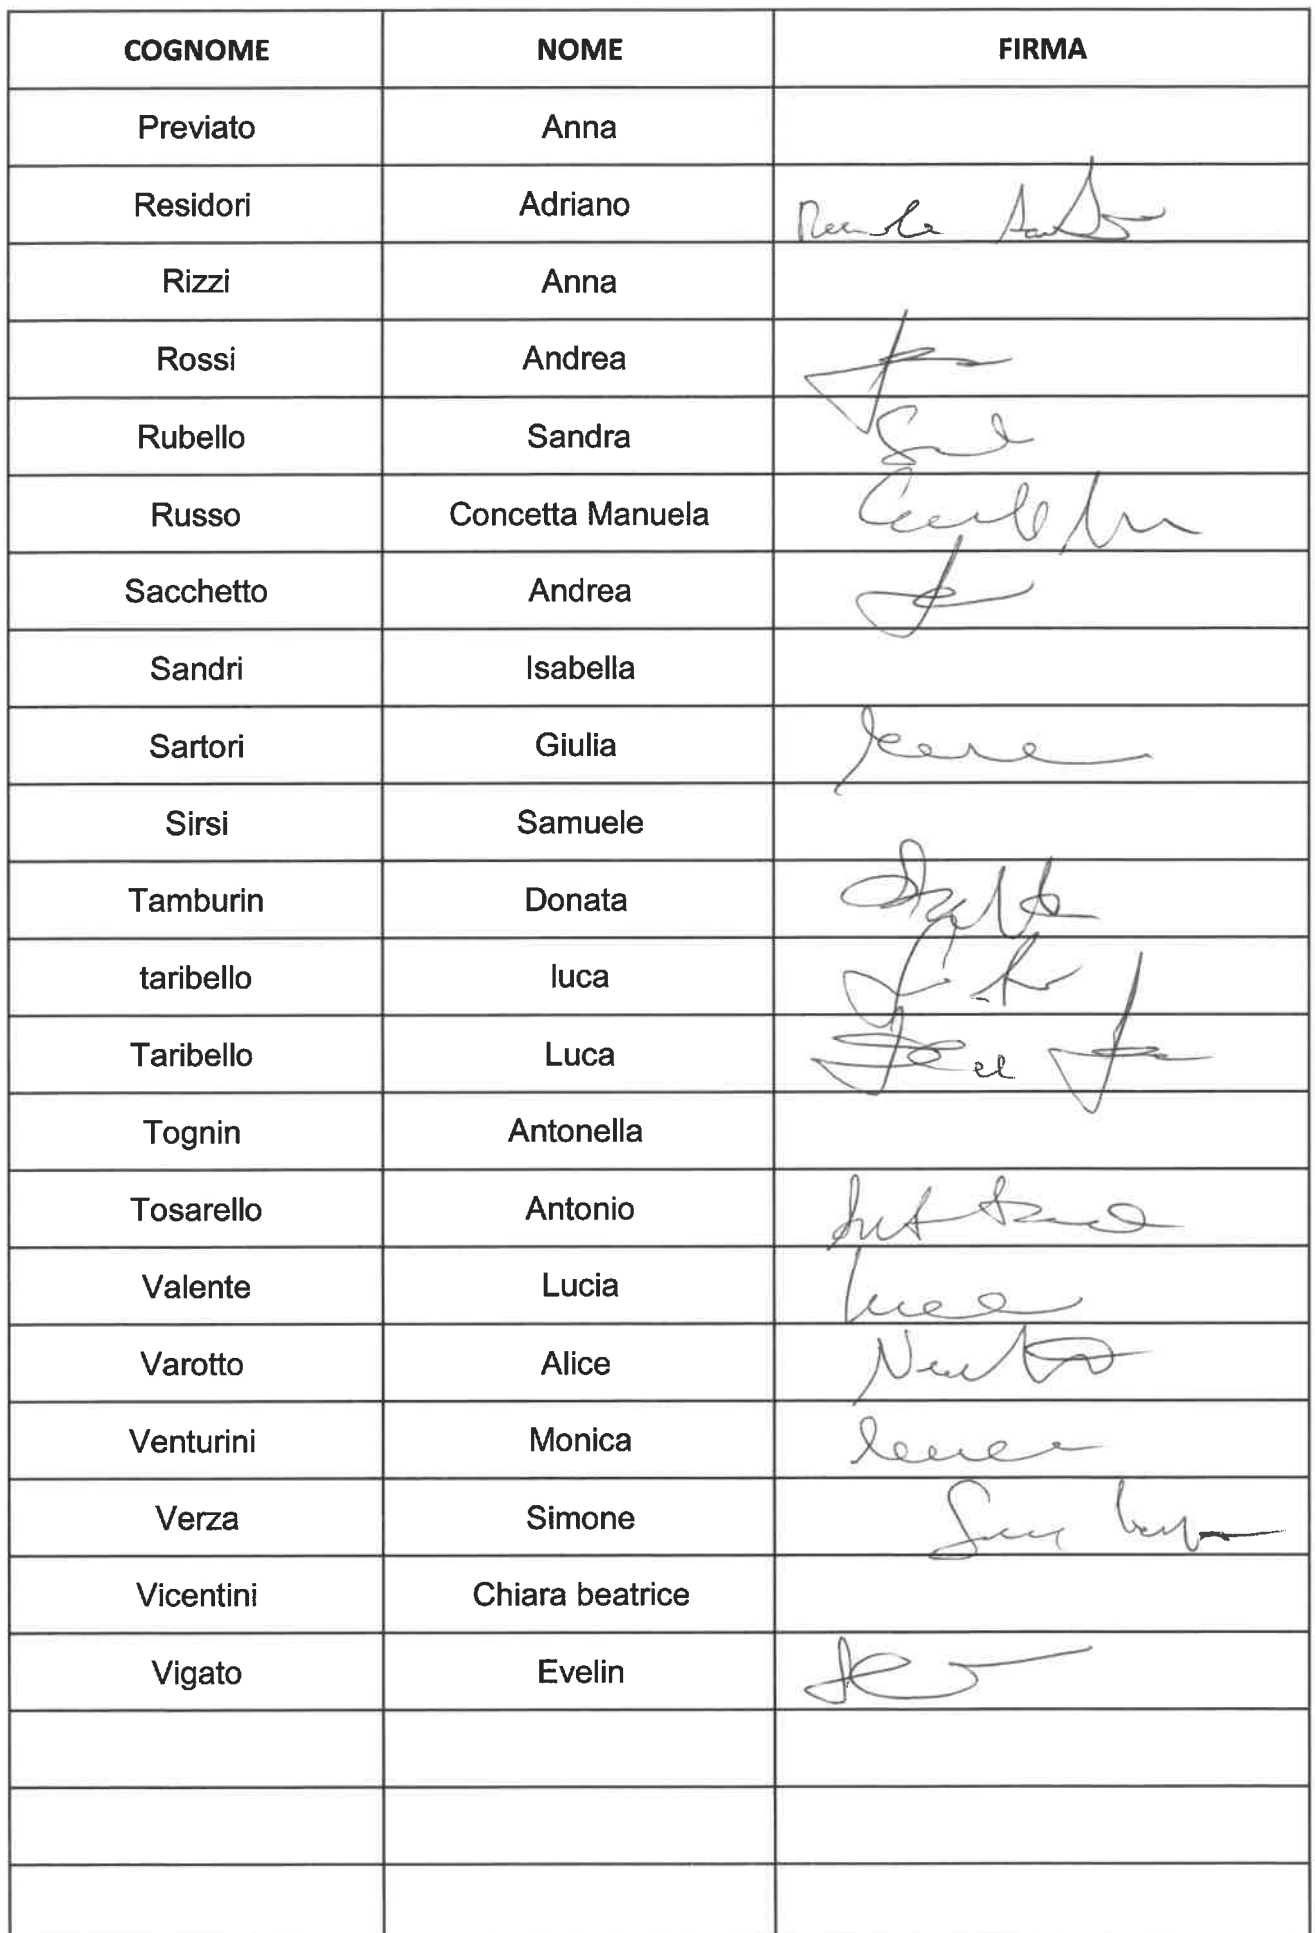 COGNOME NOME FIRMA
Previato Anna
Residori Adriano
Rizzi Anna
Rossi Andrea
Rubello Sandra
Russo Concetta Manuela
Sacchetto Andrea
Sandri Isabella
Sartori Giulia
Sirsi Samuele
Tamburin Donata
taribello luca
Taribello Luca
Tognin Antonella
Tosarello Antonio
Valente Lucia
Varotto Alice
Venturini Monica
Verza Simone
Vicentini Chiara beatrice
Vigato Evelin